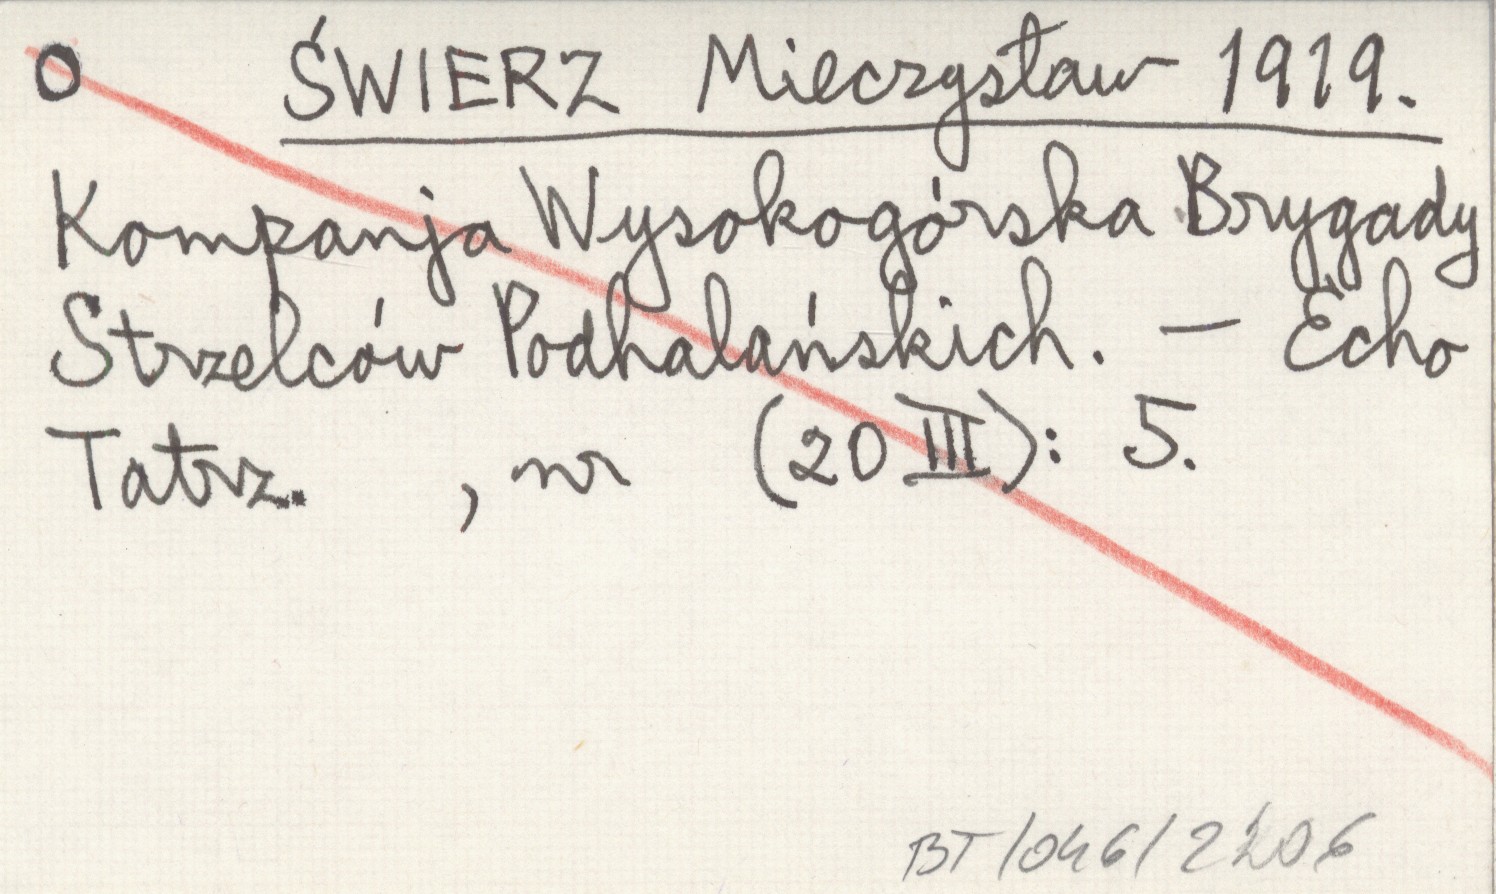 O ŚWIERZ Mieczysław 1919.
Kompanja Wysokogórska Brygady
Strzelców Podhalańskich. — Echo
Tatrz. , nr (20 III): 5.
BT/046/2206